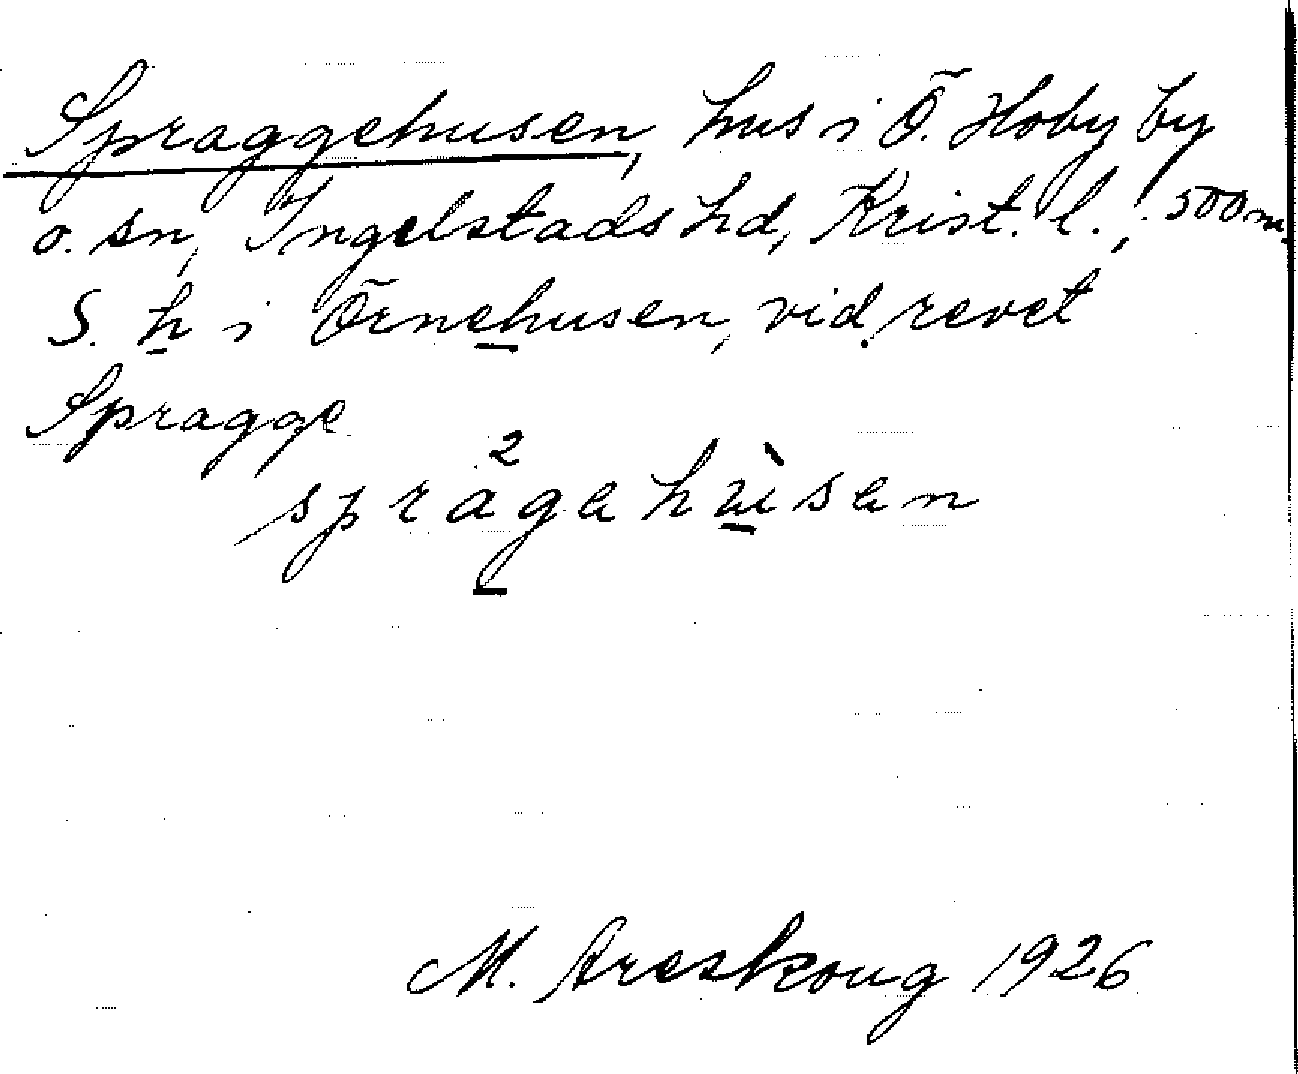 Spraggehusen, hus i Ö. Hoby by
o. sn, Ingelstads hd, Krist. l., 500 m.
S. h i Örnehusen, vid revet
Spragge
M. Areskoug 1926